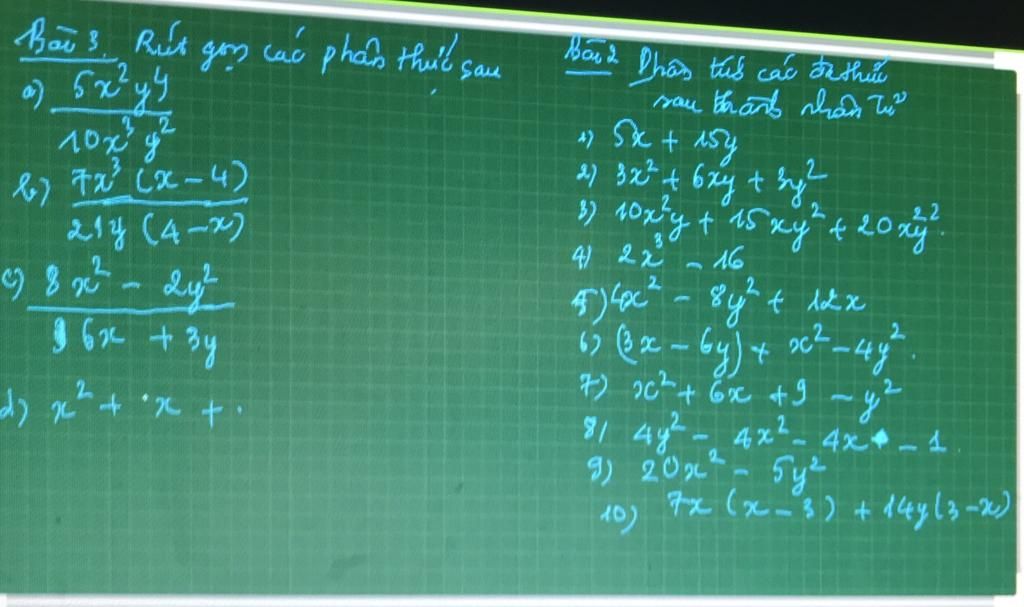 Bài 3. Rút gọn các phân thức sau
a) 5x²y⁴
10x³y²
b) 7x³(x-4)
21y(4-x)
c) 8x² - 2y²
6x + 3y
d) x² + x + .
Bài 2 Phân tích các đa thức
sau thành nhân tử
1) 5x + 15y
2) 3x² + 6xy + 3y²
3) 10x²y + 15xy² + 20x²y².
4) 2x³ - 16
5) 4x² - 8y² + 12x
6) (3x - 6y) + x² - 4y².
7) x² + 6x + 9 - y²
8) 4y² - 4x² - 4x - 1
9) 20x² - 5y²
10) 7x(x-3) + 14y(3-x)